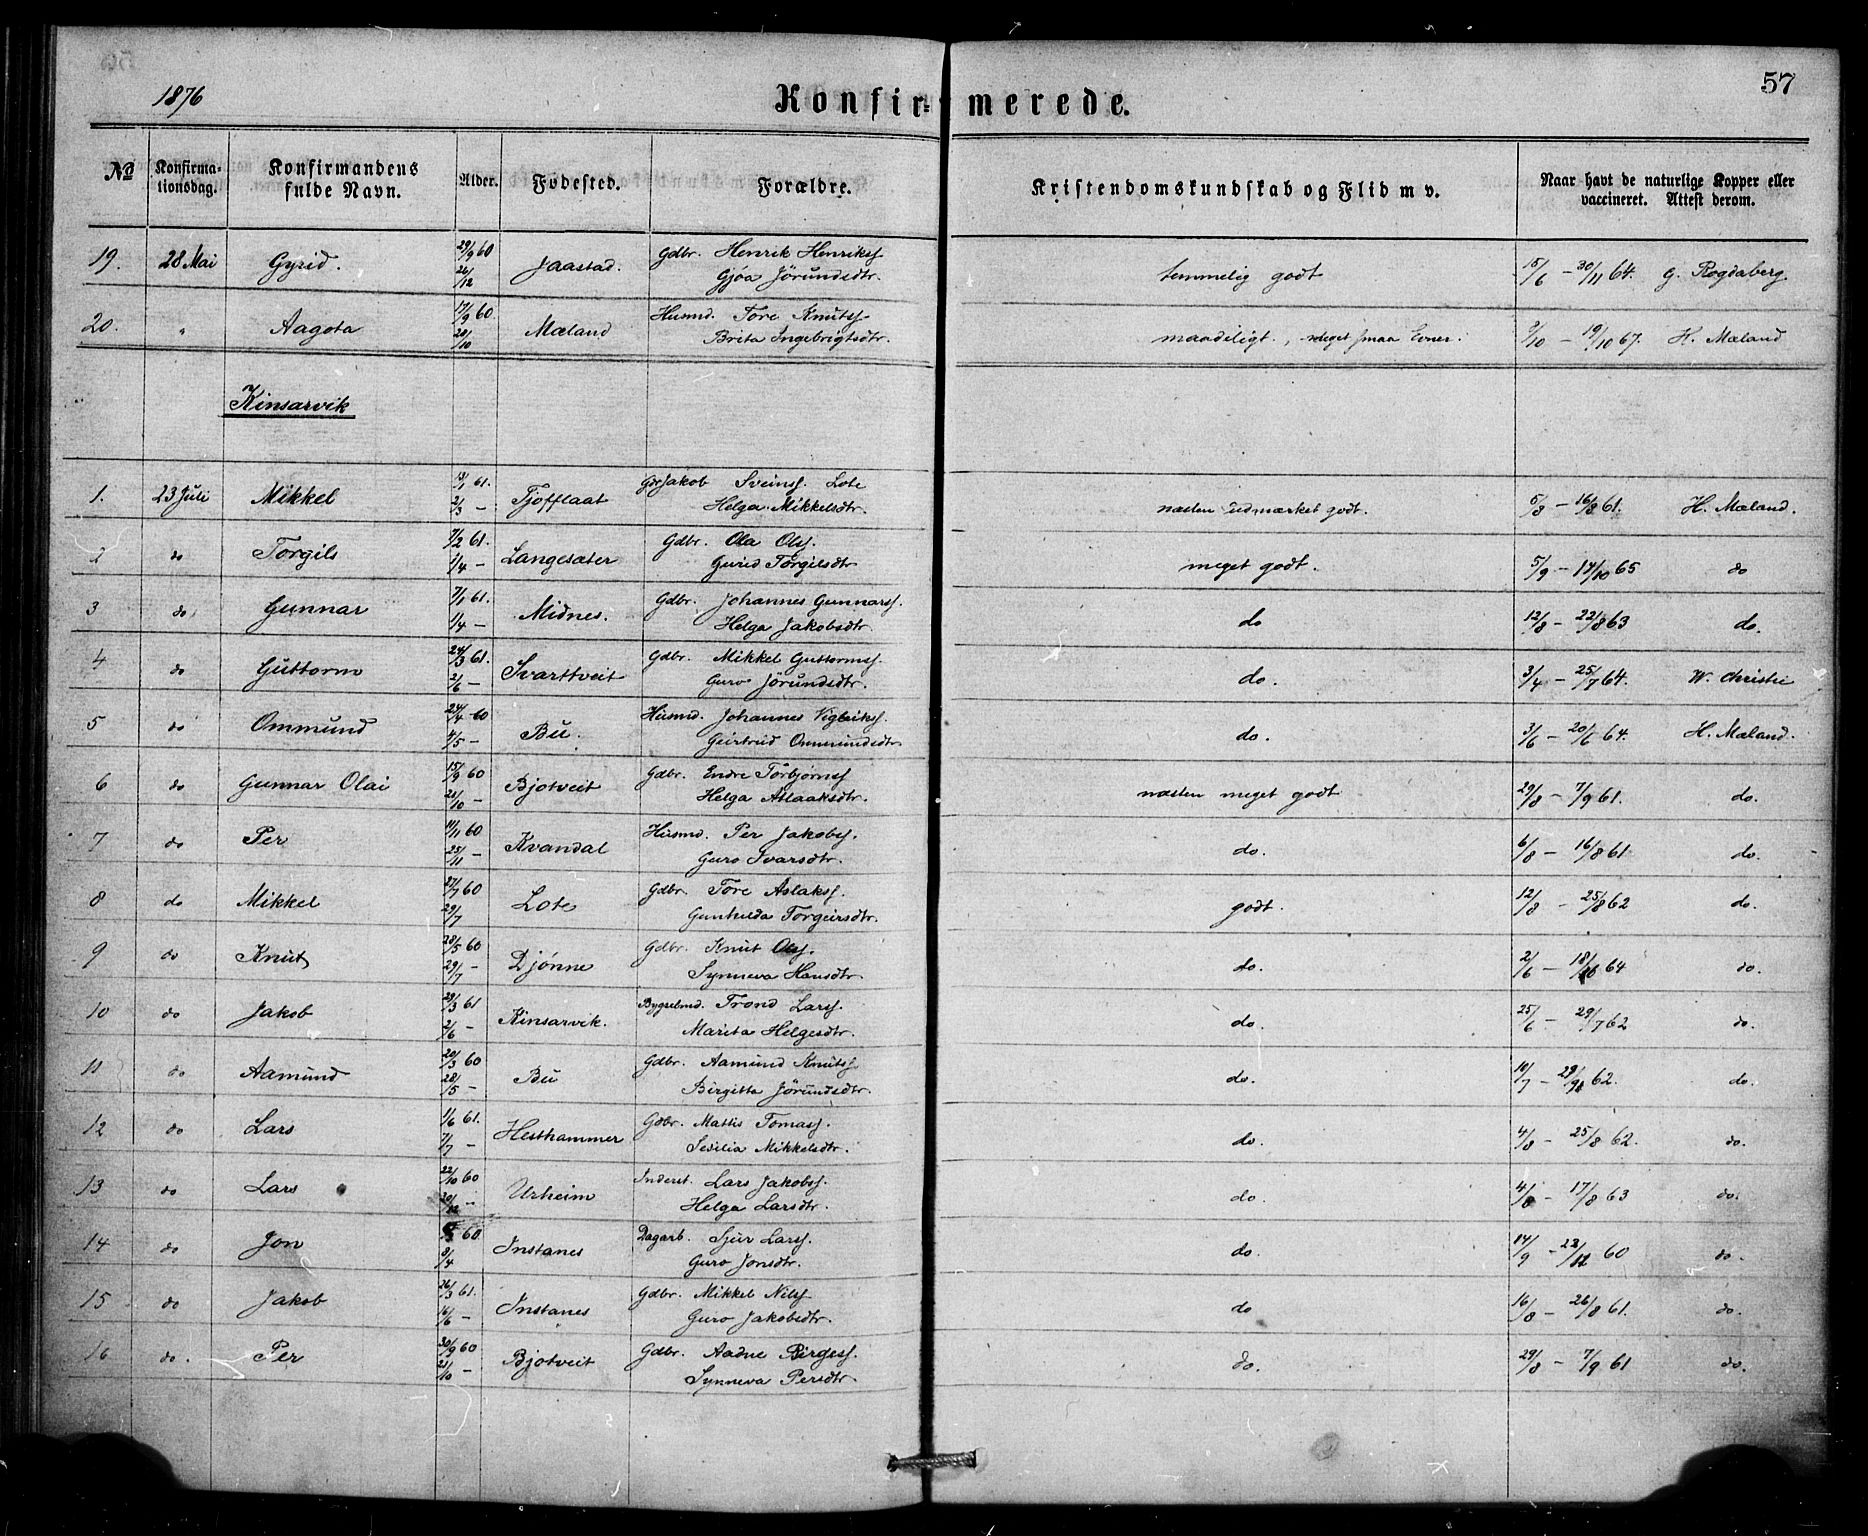 1876
Konfirmerede.
57
No
Konfirmationsdag.
Konfirmandens fulde Navn.
Alder.
Fødested.
Forældre.
Kristendomskundskab og Flid m v.
Naar havt de naturlige Kopper eller vaccineret. Attest derom.
19. 28 Mai Gyrid. 29/9 60 26/12 Jaastad. Gdbr. Henrik Henriks. Gjøa Jörundsdtr. temmelig godt 15/6 – 30/11 64. G. Rogdaberg
20. " Aagota 17/9 60 28/10 Mæland Husmd. Tore Knuts. Brita Ingebrigtsdtr. maadeligt., meget smaa Evner. 9/10 – 19/10 67. H. Mæland
Kinsarvik
1. 23 Juli Mikkel 13/1 61. 2/3 – Tjofflaat Gdr Jakob Sveins. Lote Helga Mikkelsdtr. næsten udmærket godt. 5/8 – 16/8 61. H. Mæland.
2 do Torgils 7/2 61. 1/4 – Langesæter Gdbr. Ola Ols. Gurid Torgilsdtr meget godt. 5/9 – 17/10 65 do
3 do Gunnar 7/1 61. 1/4 – Midnes. Gdbr. Johannes Gunnars. Helga Jakobsdtr. do 12/8 – 22/8 63 do.
4 do Guttorm 24/3 61. 2/6 – Svarttveit Gdbr. Mikkel Guttorms. Guro Jörundsdtr. do. 3/4 – 25/7 64. W. Christie
5 do Ommund 24/4 60 4/5 – Bu. Husmd. Johannes Vigleiks. Geirtrud Ommundsdtr do. 3/6 – 20/6 64. H. Mæland.
6 do Gunnar Olai 15/9 60 21/10 – Bjotveit Gdbr. Endre Torbjørns. Helga Aslaaksdtr. næsten meget godt 29/8 – 7/9 61. do.
7 do Per 11/11 60 25/11 – Kvandal Husmd. Per Jakobs. Guro Ivarsdtr. do. 6/8 – 16/8 61 do.
8 do Mikkel 27/7 60 29/7 Lote Gdbr. Tore Aslaks. Gunhilda Torgeirsdtr. godt. 12/8 – 25/8 62 do.
9 do Knut 28/5 60 29/7 – Djønne Gdbr. Knut Ols. Synneva Hansdtr do. 2/6 – 18/10 64 do.
10 do Jakob 29/3 61 2/6 – Kinsarvik. Bygselmd. Trond Lars. Marita Helgesdtr. do. 25/6 – 29/7 62 do.
11 do Aamund 20/3 60 28/5 – Bu Gdbr. Aamund Knuts. Birgitta Jörundsdtr. do. 10/7 – 29/9 62. do.
12 do Lars 1/6 61. 7/7 – Hesthammer Gdbr. Mattis Tomas. Sesilia Mikkelsdtr. do. 4/8 – 25/8 62. do.
13 do Lars 22/10 60 20/12 – Urheim Inderst. Lars Jakobs. Helga Larsdtr. do. 4/8 – 17/8 63 do.
14 do Jon 60 8/4 Instanes Dagarb. Sjur Lars. Guro Jonsdtr. do. 14/9 – 23/12 60 do.
15 do Jakob 26/3 61. 16/6 – Instanes Gdbr. Mikkel Nils. Guro Jakobsdtr. do 16/8 – 26/8 61. do.
16 do. Per 30/9 60 21/10 – Bjotveit Gdbr. Aadne Birges. Synneva Persdtr. do. 29/8 – 7/9 61 do.